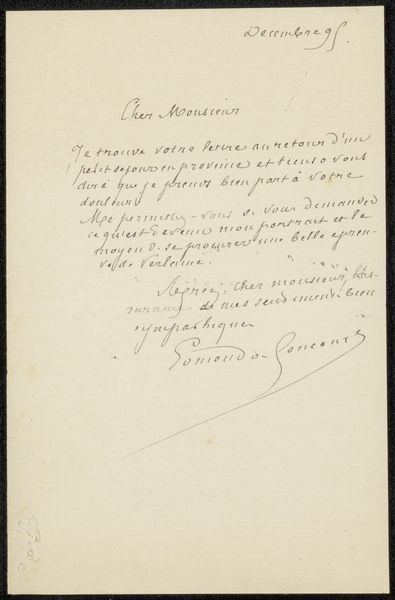 Decembre 95.
Cher Monsieur
Je trouve votre lettre au retour d'un
petit sejour en province et tiens à vous
dire que je prends bien part à votre
douleur.
Me permettez-vous de vous demander
ce qu'est devenu mon portrait et le
moyen de se procurer une belle epreu-
ve de Verlaine.
Agréez, cher monsieur, l'as-
surance de mes sentiments bien
sympathiques
Edmond de Goncourt